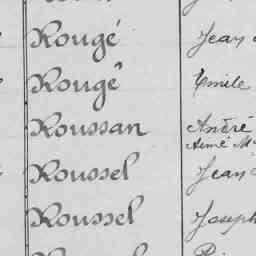 Rougé Jean
Rougé Emile
Roussan André
Aimé M
Roussel Jean
Roussel Joseph